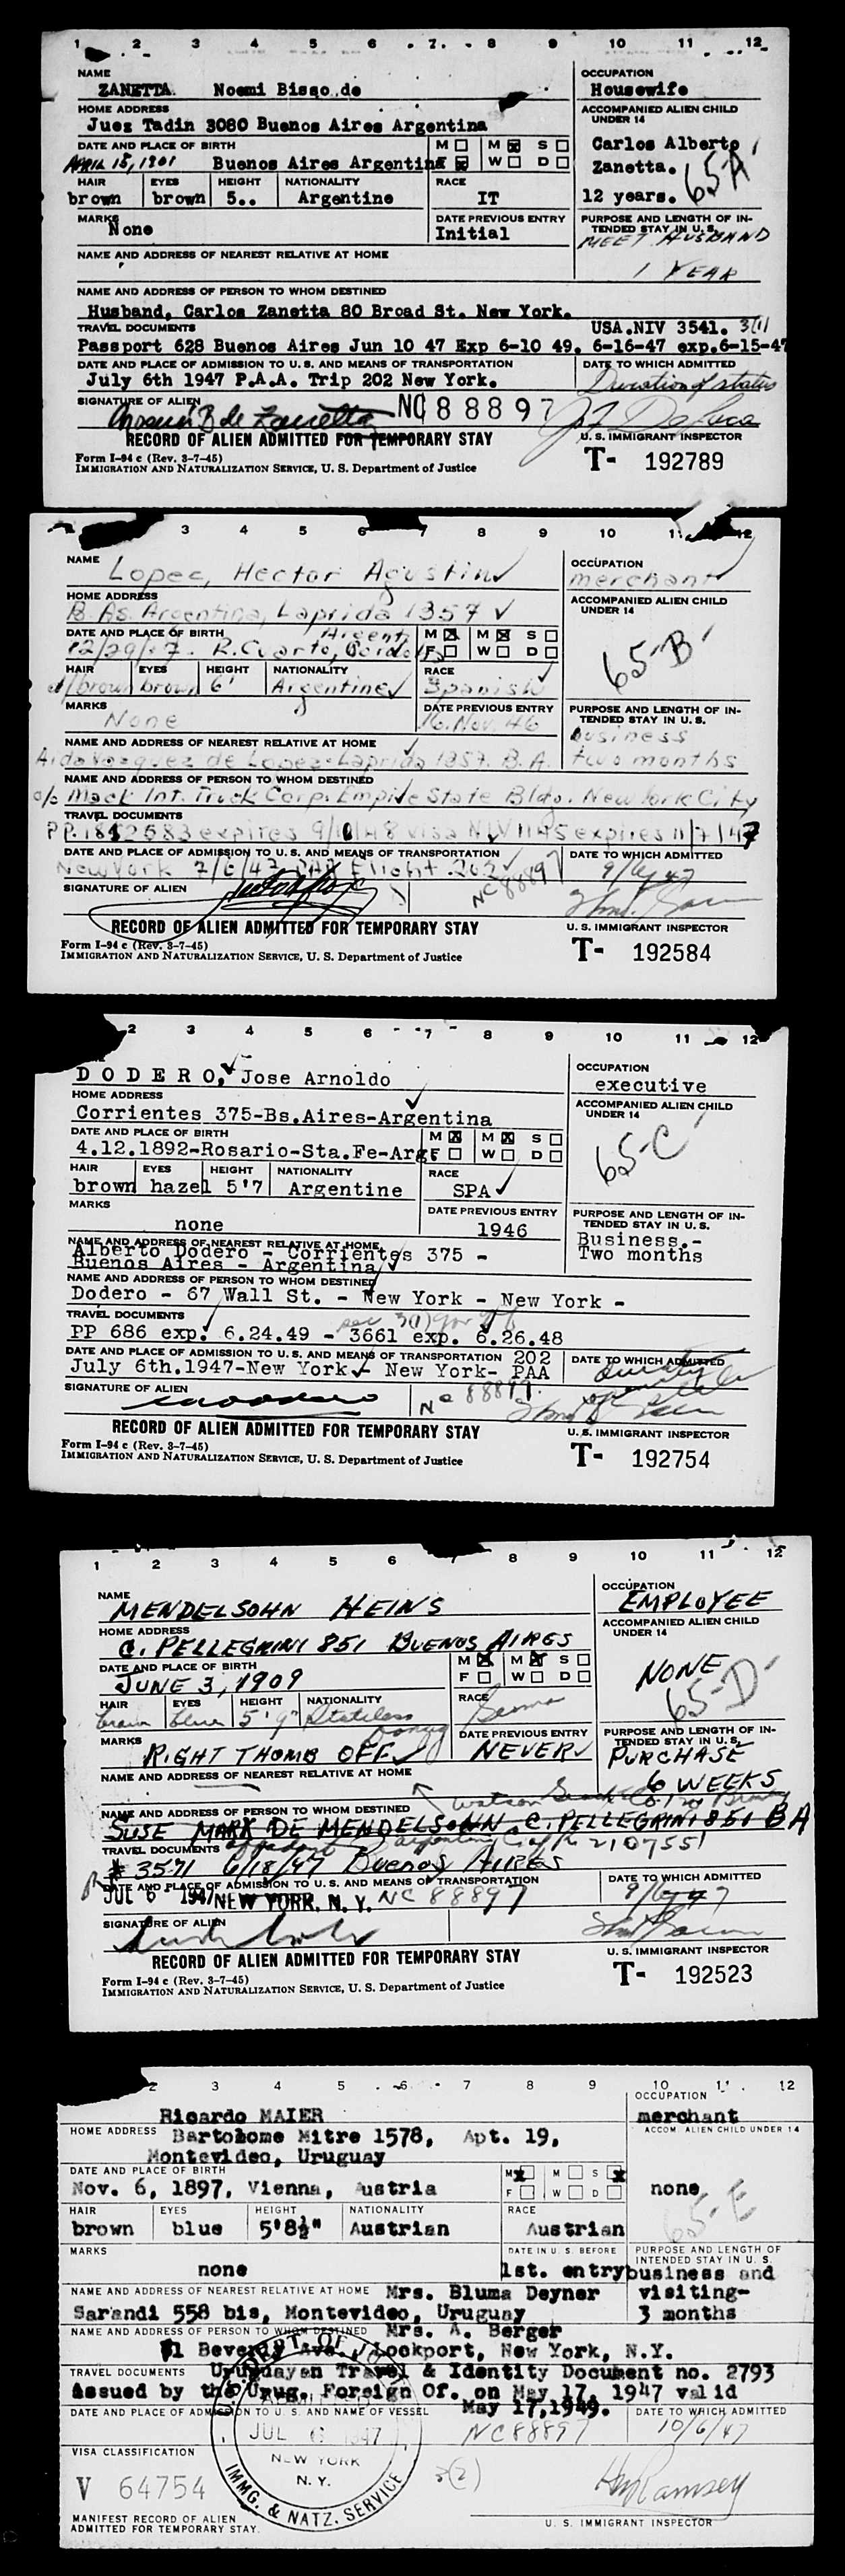 1 2 3 4 5 6 7 8 9 10 11 12
NAME
ZANETTA. Noemi Bisso de
OCCUPATION
Housewife
HOME ADDRESS
Juez Tadin 3080 Buenos Aires Argentina
ACCOMPANIED ALIEN CHILD UNDER 14
Carlos Alberto
Zanetta.
12 years.
65A
DATE AND PLACE OF BIRTH
April 15, 1901 Buenos Aires Argentina
M M S
F W D
HAIR EYES HEIGHT NATIONALITY RACE
brown brown 5.. Argentine IT
MARKS
None
DATE PREVIOUS ENTRY
Initial
PURPOSE AND LENGTH OF INTENDED STAY IN U. S.
MEET HUSBAND
1 YEAR
NAME AND ADDRESS OF NEAREST RELATIVE AT HOME
NAME AND ADDRESS OF PERSON TO WHOM DESTINED
Husband, Carlos Zanetta 80 Broad St. New York.
TRAVEL DOCUMENTS USA.NIV 3541. 3(1)
Passport 628 Buenos Aires Jun 10 47 Exp 6-10 49. 6-16-47 exp.6-15-47
DATE AND PLACE OF ADMISSION TO U. S. AND MEANS OF TRANSPORTATION
July 6th 1947 P.A.A. Trip 202 New York.
DATE TO WHICH ADMITTED
Duration of status
SIGNATURE OF ALIEN
NC 88897
RECORD OF ALIEN ADMITTED FOR TEMPORARY STAY
U. S. IMMIGRANT INSPECTOR
Form I-94 c (Rev. 3-7-45)
IMMIGRATION AND NATURALIZATION SERVICE, U. S. Department of Justice
T- 192789
3 4 5 6 7 8 9 10 11 12
NAME
Lopec, Hector Agustin
OCCUPATION
merchant
HOME ADDRESS
B. As. Argentina, Laprida 1357
ACCOMPANIED ALIEN CHILD UNDER 14
65-B
DATE AND PLACE OF BIRTH
Argent.
R. Cuarto,
M M S
F W D
HAIR EYES HEIGHT NATIONALITY RACE
d/brown brown 6' Argentine Spanish
MARKS
None
DATE PREVIOUS ENTRY
16. Nov. 46
PURPOSE AND LENGTH OF INTENDED STAY IN U. S.
business
two months
NAME AND ADDRESS OF NEAREST RELATIVE AT HOME
Aida Vazquez de Lopez-Laprida 1357. B. A.
NAME AND ADDRESS OF PERSON TO WHOM DESTINED
c/o Mack Int. Truck Corp. Empire State Bldg. New York City
TRAVEL DOCUMENTS
PP. 1842583 expires 9/10/48 visa NIV 1145 expires 11/7/47
DATE AND PLACE OF ADMISSION TO U. S. AND MEANS OF TRANSPORTATION
New York 7/6/47 PAA Flight 202
DATE TO WHICH ADMITTED
9/6/47
SIGNATURE OF ALIEN
NC 88897
RECORD OF ALIEN ADMITTED FOR TEMPORARY STAY
U. S. IMMIGRANT INSPECTOR
Form I-94 c (Rev. 3-7-45)
IMMIGRATION AND NATURALIZATION SERVICE, U. S. Department of Justice
T- 192584
2 3 4 5 6 7 8 9 10 11 12
DODERO, Jose Arnoldo
OCCUPATION
executive
HOME ADDRESS
Corrientes 375-Bs.Aires-Argentina
ACCOMPANIED ALIEN CHILD UNDER 14
65-C
DATE AND PLACE OF BIRTH
4.12.1892-Rosario-Sta.Fe-Arg
M M S
F W D
HAIR EYES HEIGHT NATIONALITY RACE
brown hazel 5'7 Argentine SPA
MARKS
none
DATE PREVIOUS ENTRY
1946
PURPOSE AND LENGTH OF INTENDED STAY IN U. S.
Business.-
Two months
NAME AND ADDRESS OF NEAREST RELATIVE AT HOME
Alberto Dodero - Corrientes 375 -
Buenos Aires - Argentina
NAME AND ADDRESS OF PERSON TO WHOM DESTINED
Dodero - 67 Wall St. - New York - New York -
TRAVEL DOCUMENTS
PP 686 exp. 6.24.49 - 3661 exp. 6.26.48
DATE AND PLACE OF ADMISSION TO U. S. AND MEANS OF TRANSPORTATION 202
July 6th.1947-New York - New York- PAA
DATE TO WHICH ADMITTED
SIGNATURE OF ALIEN
Nc 88897
RECORD OF ALIEN ADMITTED FOR TEMPORARY STAY
U. S. IMMIGRANT INSPECTOR
Form I-94 c (Rev. 3-7-45)
IMMIGRATION AND NATURALIZATION SERVICE, U. S. Department of Justice
T- 192754
1 2 3 4 5 6 8 9 10 11 12
NAME
MENDELSOHN HEINS
OCCUPATION
EMPLOYEE
HOME ADDRESS
C. PELLEGRINI 851 BUENOS AIRES
ACCOMPANIED ALIEN CHILD UNDER 14
NONE
65-D
DATE AND PLACE OF BIRTH
JUNE 3, 1909
M M S
F W D
HAIR EYES HEIGHT NATIONALITY RACE
brown blue 5'9" Stateless
MARKS
RIGHT THOMB OFF
DATE PREVIOUS ENTRY
NEVER
PURPOSE AND LENGTH OF INTENDED STAY IN U. S.
PURCHASE
6 WEEKS
NAME AND ADDRESS OF NEAREST RELATIVE AT HOME
NAME AND ADDRESS OF PERSON TO WHOM DESTINED
SUSE MARX DE MENDELSOHN C. PELLEGRINI 851 BA
TRAVEL DOCUMENTS 2107551
# 3571 6/18/47 BUENOS AIRES
DATE AND PLACE OF ADMISSION TO U. S. AND MEANS OF TRANSPORTATION
JUL 6 1947 NEW YORK, N. Y. NC 88897
DATE TO WHICH ADMITTED
9/6/47
SIGNATURE OF ALIEN
RECORD OF ALIEN ADMITTED FOR TEMPORARY STAY
U. S. IMMIGRANT INSPECTOR
Form I-94 c (Rev. 3-7-45)
IMMIGRATION AND NATURALIZATION SERVICE, U. S. Department of Justice
T- 192523
2 3 4 5 6 7 8 9 10 11 12
Ricardo MAIER
OCCUPATION
merchant
HOME ADDRESS Bartolome Mitre 1578, Apt. 19,
Montevideo, Uruguay
ACCOM. ALIEN CHILD UNDER 14
none
65-E
DATE AND PLACE OF BIRTH
Nov. 6, 1897, Vienna, Austria
M M S
F W D
HAIR EYES HEIGHT NATIONALITY RACE
brown blue 5'8½" Austrian Austrian
MARKS
none
DATE IN U. S. BEFORE
1st. entry
PURPOSE AND LENGTH OF INTENDED STAY IN U. S.
business and
visiting-
3 months
NAME AND ADDRESS OF NEAREST RELATIVE AT HOME Mrs. Bluma Deyner
Sarandi 558 bis, Montevideo, Uruguay
NAME AND ADDRESS OF PERSON TO WHOM DESTINED Mrs. A. Berger
71 Beverly Ave. Lockport, New York, N.Y.
TRAVEL DOCUMENTS Uruguayan Travel & Identity Document no. 2793
issued by the Urug. Foreign Of. on May 17, 1947 valid
May 17,1949.
DATE AND PLACE OF ADMISSION TO U. S. AND NAME OF VESSEL
NC 88897
DATE TO WHICH ADMITTED
10/6/47
DEPT. OF
JUL 6 1947
NEW YORK
N. Y.
IMMG. & NATZ. SERVICE
VISA CLASSIFICATION
V 64754
3(2)
HM Ramsey
MANIFEST RECORD OF ALIEN
ADMITTED FOR TEMPORARY STAY.
U. S. IMMIGRANT INSPECTOR